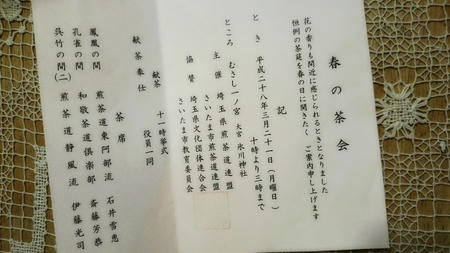 春の茶会
花の香りも間近に感じられるときとなりました
恒例の茶莚を春の日に開きたく ご案内申し上げます
記
とき 平成二八年三月二十一日(月曜日) 十時より三時まで
ところ むさし一ノ宮 大宮 氷川神社
主催 埼玉県煎茶道連盟
さいたま市煎茶道連盟
協賛 埼玉県文化団体連合会
さいたま市教育委員会
献茶 十一時挙式
献茶奉仕 役員一同
茶席
鳳凰の間 煎茶道東阿部流 石井雪惠
孔雀の間 和敬茶道倶楽部 斎藤芳恭
呉竹の間(二) 煎茶道静風流 伊藤光司